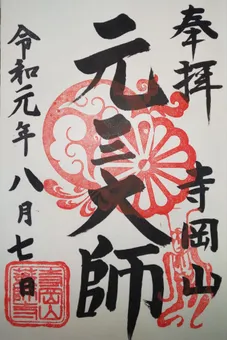 奉拝
寺岡山
元三大師
令和元年八月七日